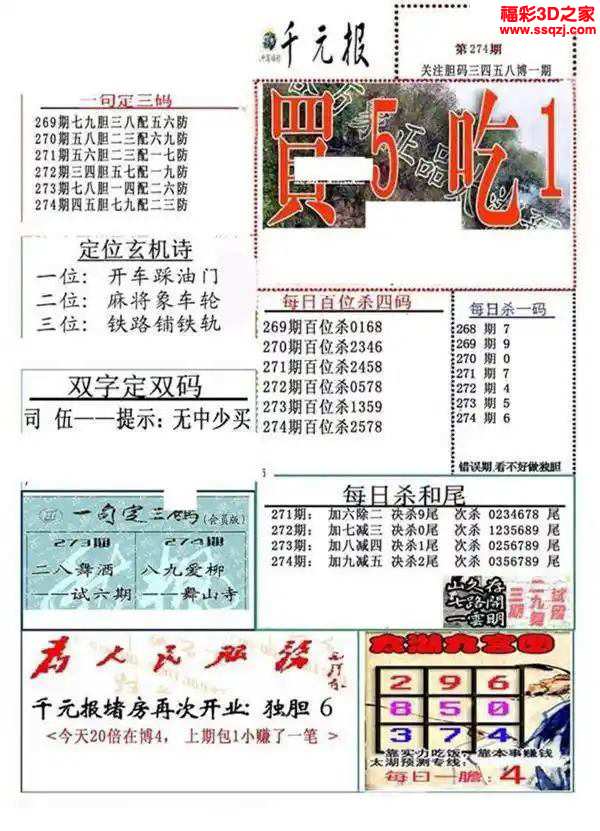 福彩3D之家
www.ssqzj.com
千元报
第274期
关注胆码三四五八博一期
一句定三码
269期七九胆三八配五六防
270期五八胆二三配六九防
271期五六胆二三配一七防
272期三四胆五七配一九防
273期七八胆一四配二六防
274期四五胆七九配二三防
買5吃1
定位玄机诗
一位：开车踩油门
二位：麻将象车轮
三位：铁路铺铁轨
每日百位杀四码
269期百位杀0168
270期百位杀2346
271期百位杀2458
272期百位杀0578
273期百位杀1359
274期百位杀2578
每日杀一码
268 期 7
269 期 9
270 期 0
271 期 7
272 期 4
273 期 5
274 期 6
错误期,看不好做独胆
双字定双码
司 伍——提示：无中少买
一句定三码(会员版)
273期
二八舞酒
——试六期
274期
八九爱柳
——舞山寺
每日杀和尾
271期： 加六除二 决杀9尾 次杀 0234678 尾
272期： 加七减三 决杀0尾 次杀 1235689 尾
273期： 加八减四 决杀1尾 次杀 0256789 尾
274期： 加九减五 决杀2尾 次杀 0356789 尾
为人民服务
千元报堵房再次开业：独胆 6
<今天20倍在博4， 上期包1小赚了一笔 >
太湖九宫图
2 9 6
8 5 0
3 7 4
靠实力吃饭，靠本事赚钱
太湖预测专线：
每日一胆：4